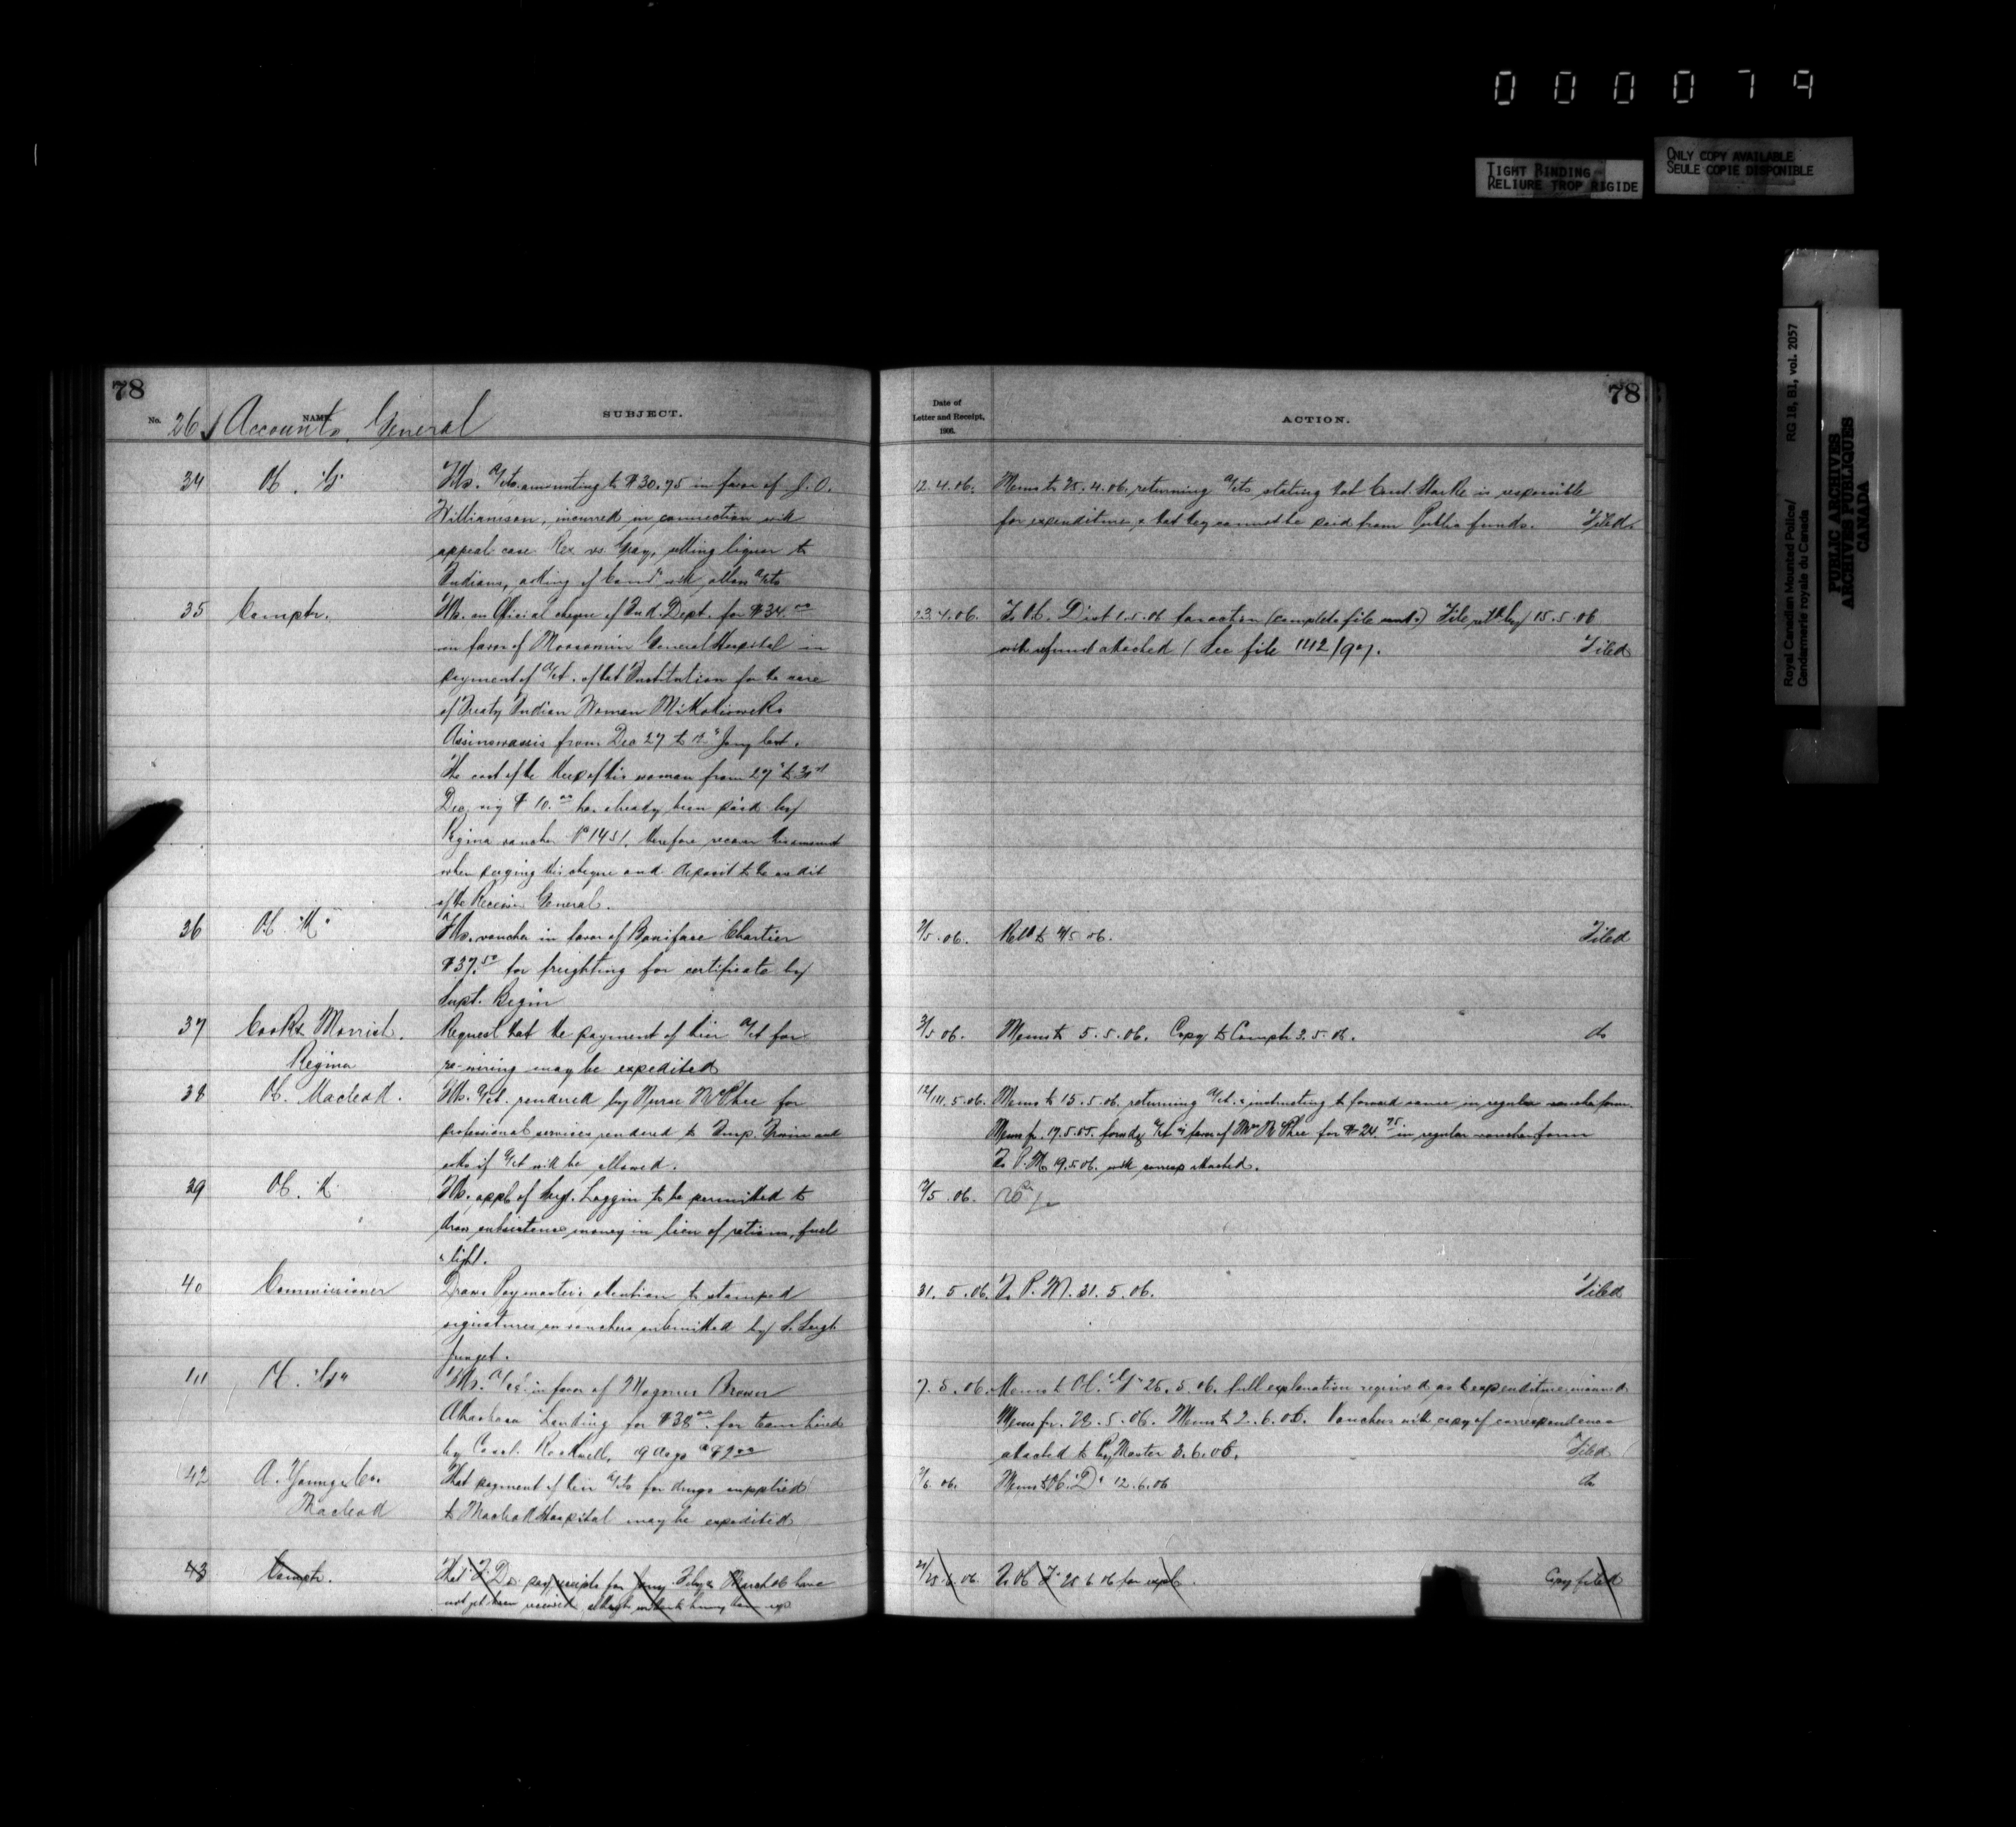 0 0 0 0 7 9
TIGHT BINDING
RELIURE TROP RIGIDE
ONLY COPY AVAILABLE
SEULE COPIE DISPONIBLE
Royal Canadian Mounted Police/ RG 18, B1, vol. 2057
Gendarmerie royale du Canada
PUBLIC ARCHIVES
ARCHIVES PUBLIQUES
CANADA
78
No. 26 NAME. Accounts, General SUBJECT.
34 OC. "G" Fds. a/cts. amounting to $30.75 in favor of J. O.
Williamson, incurred in connection with
appeal case Rex vs Gray, selling liquor to
Indians, asking if Comr will allow a/cts
35 Comptr. Fds. an Official cheque of Ind. Dept. for $34.00
in favor of Moosomin General Hospital in
payment of a/ct. of that Institution for the care
of Treaty Indian Woman
from Dec 27 to Jany last.
The cost of the keep of this woman from 27th to 31st
Dec. viz $10.00 has already been paid by
Regina voucher No 1451, therefore recover this amount
when paying this cheque and deposit to the credit
of the Receiver General.
36 OC. "K" Fds. voucher in favor of Boniface Chartier
$37.50 for freighting for certificate by
Supt. Begin
37 Cooks Morrish. Request that the payment of their a/ct for
Regina re-wiring may be expedited
38 OC. Macleod. Fds. a/ct. rendered by Nurse McPhee for
professional services rendered to Insp. Irwin and
asks if a/ct will be allowed.
39 OC. K. Fds. appl. of Sergt. Loggin to be permitted to
draw subsistence money in lieu of rations, fuel
& light.
40 Commissioner Draws Paymaster's attention to stamped
signatures on vouchers submitted by S. Sergt
41 OC. "G" Fds. a/ct. in favor of Magnus Brown
Athabasca Landing for $38.00 for team hired
by Const. Rockwell, 19 days @ $2.00
42 A. Young & Co. That payment of their a/cts for drugs supplied
Macleod to Macleod Hospital may be expedited
43 Comptr. That "F" Div. pay receipts for Jany. Feby & March 06 have
not yet been received although
78
Date of
Letter and Receipt,
1906.
ACTION.
12.4.06. Memo to 25.4.06, returning a/cts stating that Const. is responsible
for expenditure, & that they cannot be paid from Public funds. Filed.
23.4.06. To OC. Dist 1.5.06 for action (complete file sent) File retd by 15.5.06
with refund attached (See file 1142/07. Filed
/5.06. Retd to /5.06. Filed
3/5 06. Memo to 5.5.06. Copy to Comptr 3.5.06. do
12/14.5.06. Memo to 15.5.06. returning a/ct. & instructing to forward same in regular voucher form.
Memo fr. 17.5.05. fowdg a/ct in favor of Mrs McPhee for $24.75 in regular voucher form
To P.M. 19.5.06. with corresp attached.
/5.06.
31.5.06. To P.M. 31.5.06. Filed
7.5.06. Memo to OC. "G" 25.5.06. full explanation required as to expenditure incurred
Memo fr. 28.5.06. Memo to 2.6.06. Vouchers with copy of correspondence
attached to Pay Master 8.6.06. Filed
/6.06. Memo to OC. "D" 12.6.06 do
/25.6.06 To OC F 25 6 06 for expl. Copy filed